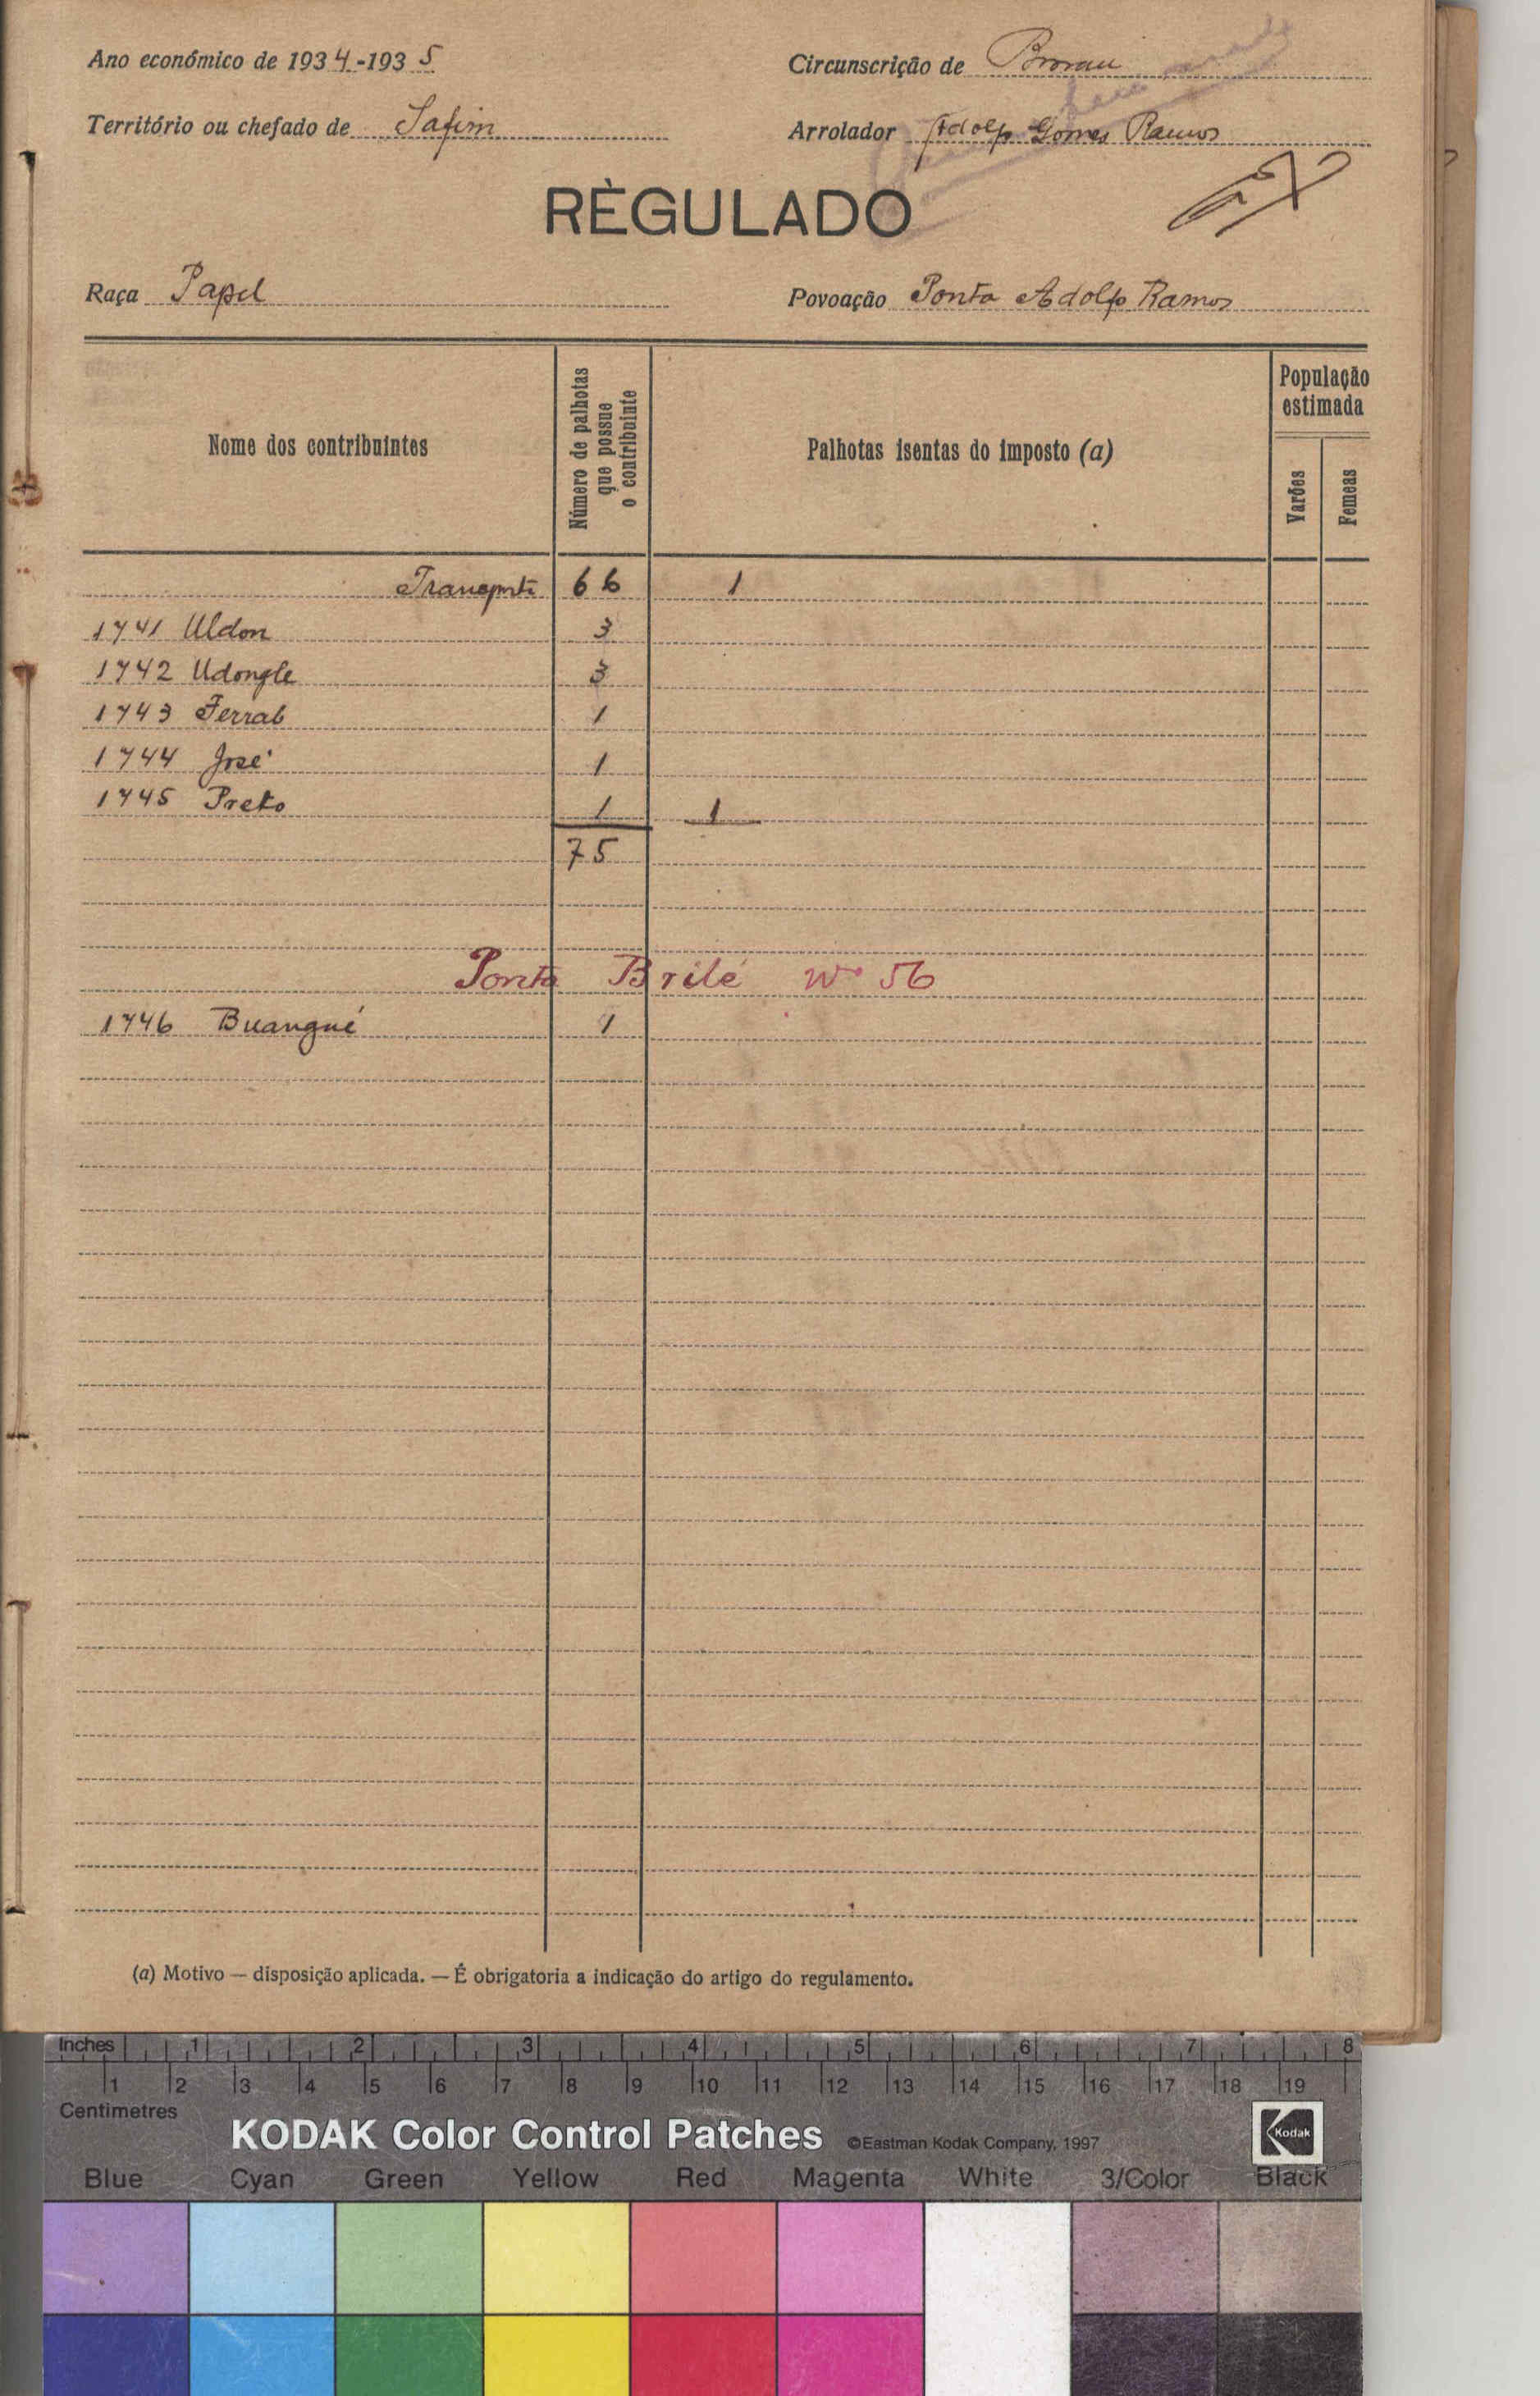 Ano económico de 1934-1935
Circunscrição de
Território ou chefado de Safim
Arrolador Adolfo Gomes Ramos
RÈGULADO
Raça Papel
Povoação Ponta Adolfo Ramos
Nome dos contribuintes
Número de palhotas
que possue
o contribuinte
Palhotas isentas do imposto (a)
População
estimada
Varões
Femeas
Transporte 66 1
1741 Uldon 3
1742 Udongle 3
1743 Ferrab 1
1744 José 1
1745 Preto 1 1
75
Ponta Brilé Nº 56
1746 Buangué 1
(a) Motivo — disposição aplicada. — É obrigatoria a indicação do artigo do regulamento.
Inches 1 2 3 4 5 6 7 8
1 2 3 4 5 6 7 8 9 10 11 12 13 14 15 16 17 18 19
Centimetres
KODAK Color Control Patches ©Eastman Kodak Company, 1997 Kodak
Blue Cyan Green Yellow Red Magenta White 3/Color Black